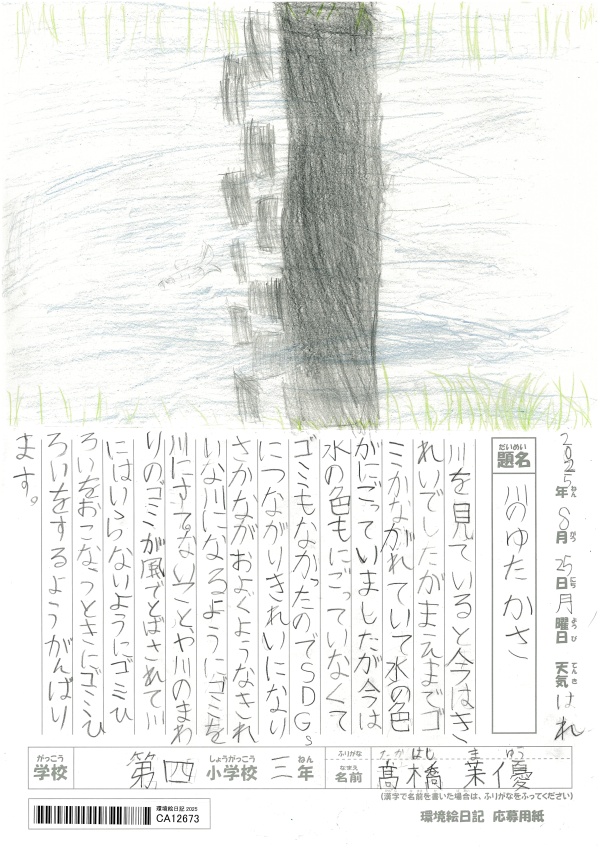 2025年ねん 8月がつ 25日にち 月曜日ようび 天気てんき はれ
題名だいめい 川のゆたかさ
川を見ていると今はき
れいでしたがまえまでゴ
ミがながれていて水の色
がにごっていましたが今は
水の色もにごっていなくて
ゴミもなかったのでSDGs
につながりきれいになり
さかながおよぐようなきれ
いな川になるようにゴミを
川にすてないことや川のまわ
りのゴミが風でとばされて川
にはいらないようにゴミひ
ろいをおこなうときにゴミひ
ろいをするようがんばり
ます。
がっこう しょうがっこう ねん ふりがな たかはし まゆう
学校 第四小学校 三年 なまえ 名前 髙橋 茉優
(漢字で名前を書いた場合は、ふりがなをふってください)
環境絵日記 2025
CA12673
環境絵日記 応募用紙